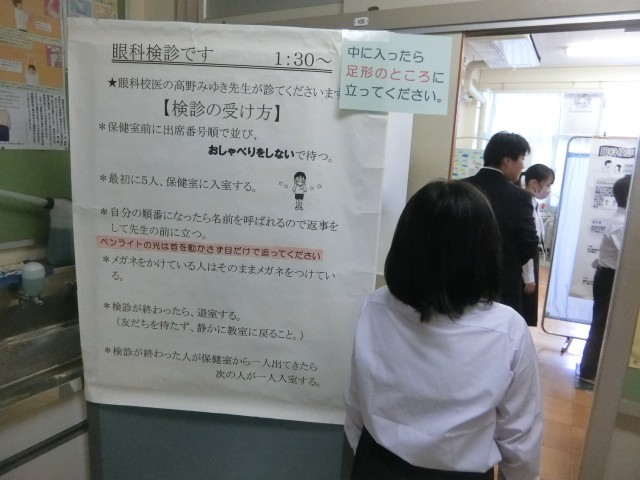 眼科検診です　　1:30～
★眼科校医の高野みゆき先生が診てくださいます
【検診の受け方】
＊保健室前に出席番号順で並び、
おしゃべりをしないで待つ。
＊最初に5人、保健室に入室する。
＊自分の順番になったら名前を呼ばれるので返事を
して先生の前に立つ。
ペンライトの光は首を動かさず目だけで追ってください
＊メガネをかけている人はそのままメガネをつけてい
る。
＊検診が終わったら、退室する。
（友だちを待たず、静かに教室に戻ること。）
＊検診が終わった人が保健室から一人出てきたら
次の人が一人入室する。
中に入ったら
足形のところに
立ってください。